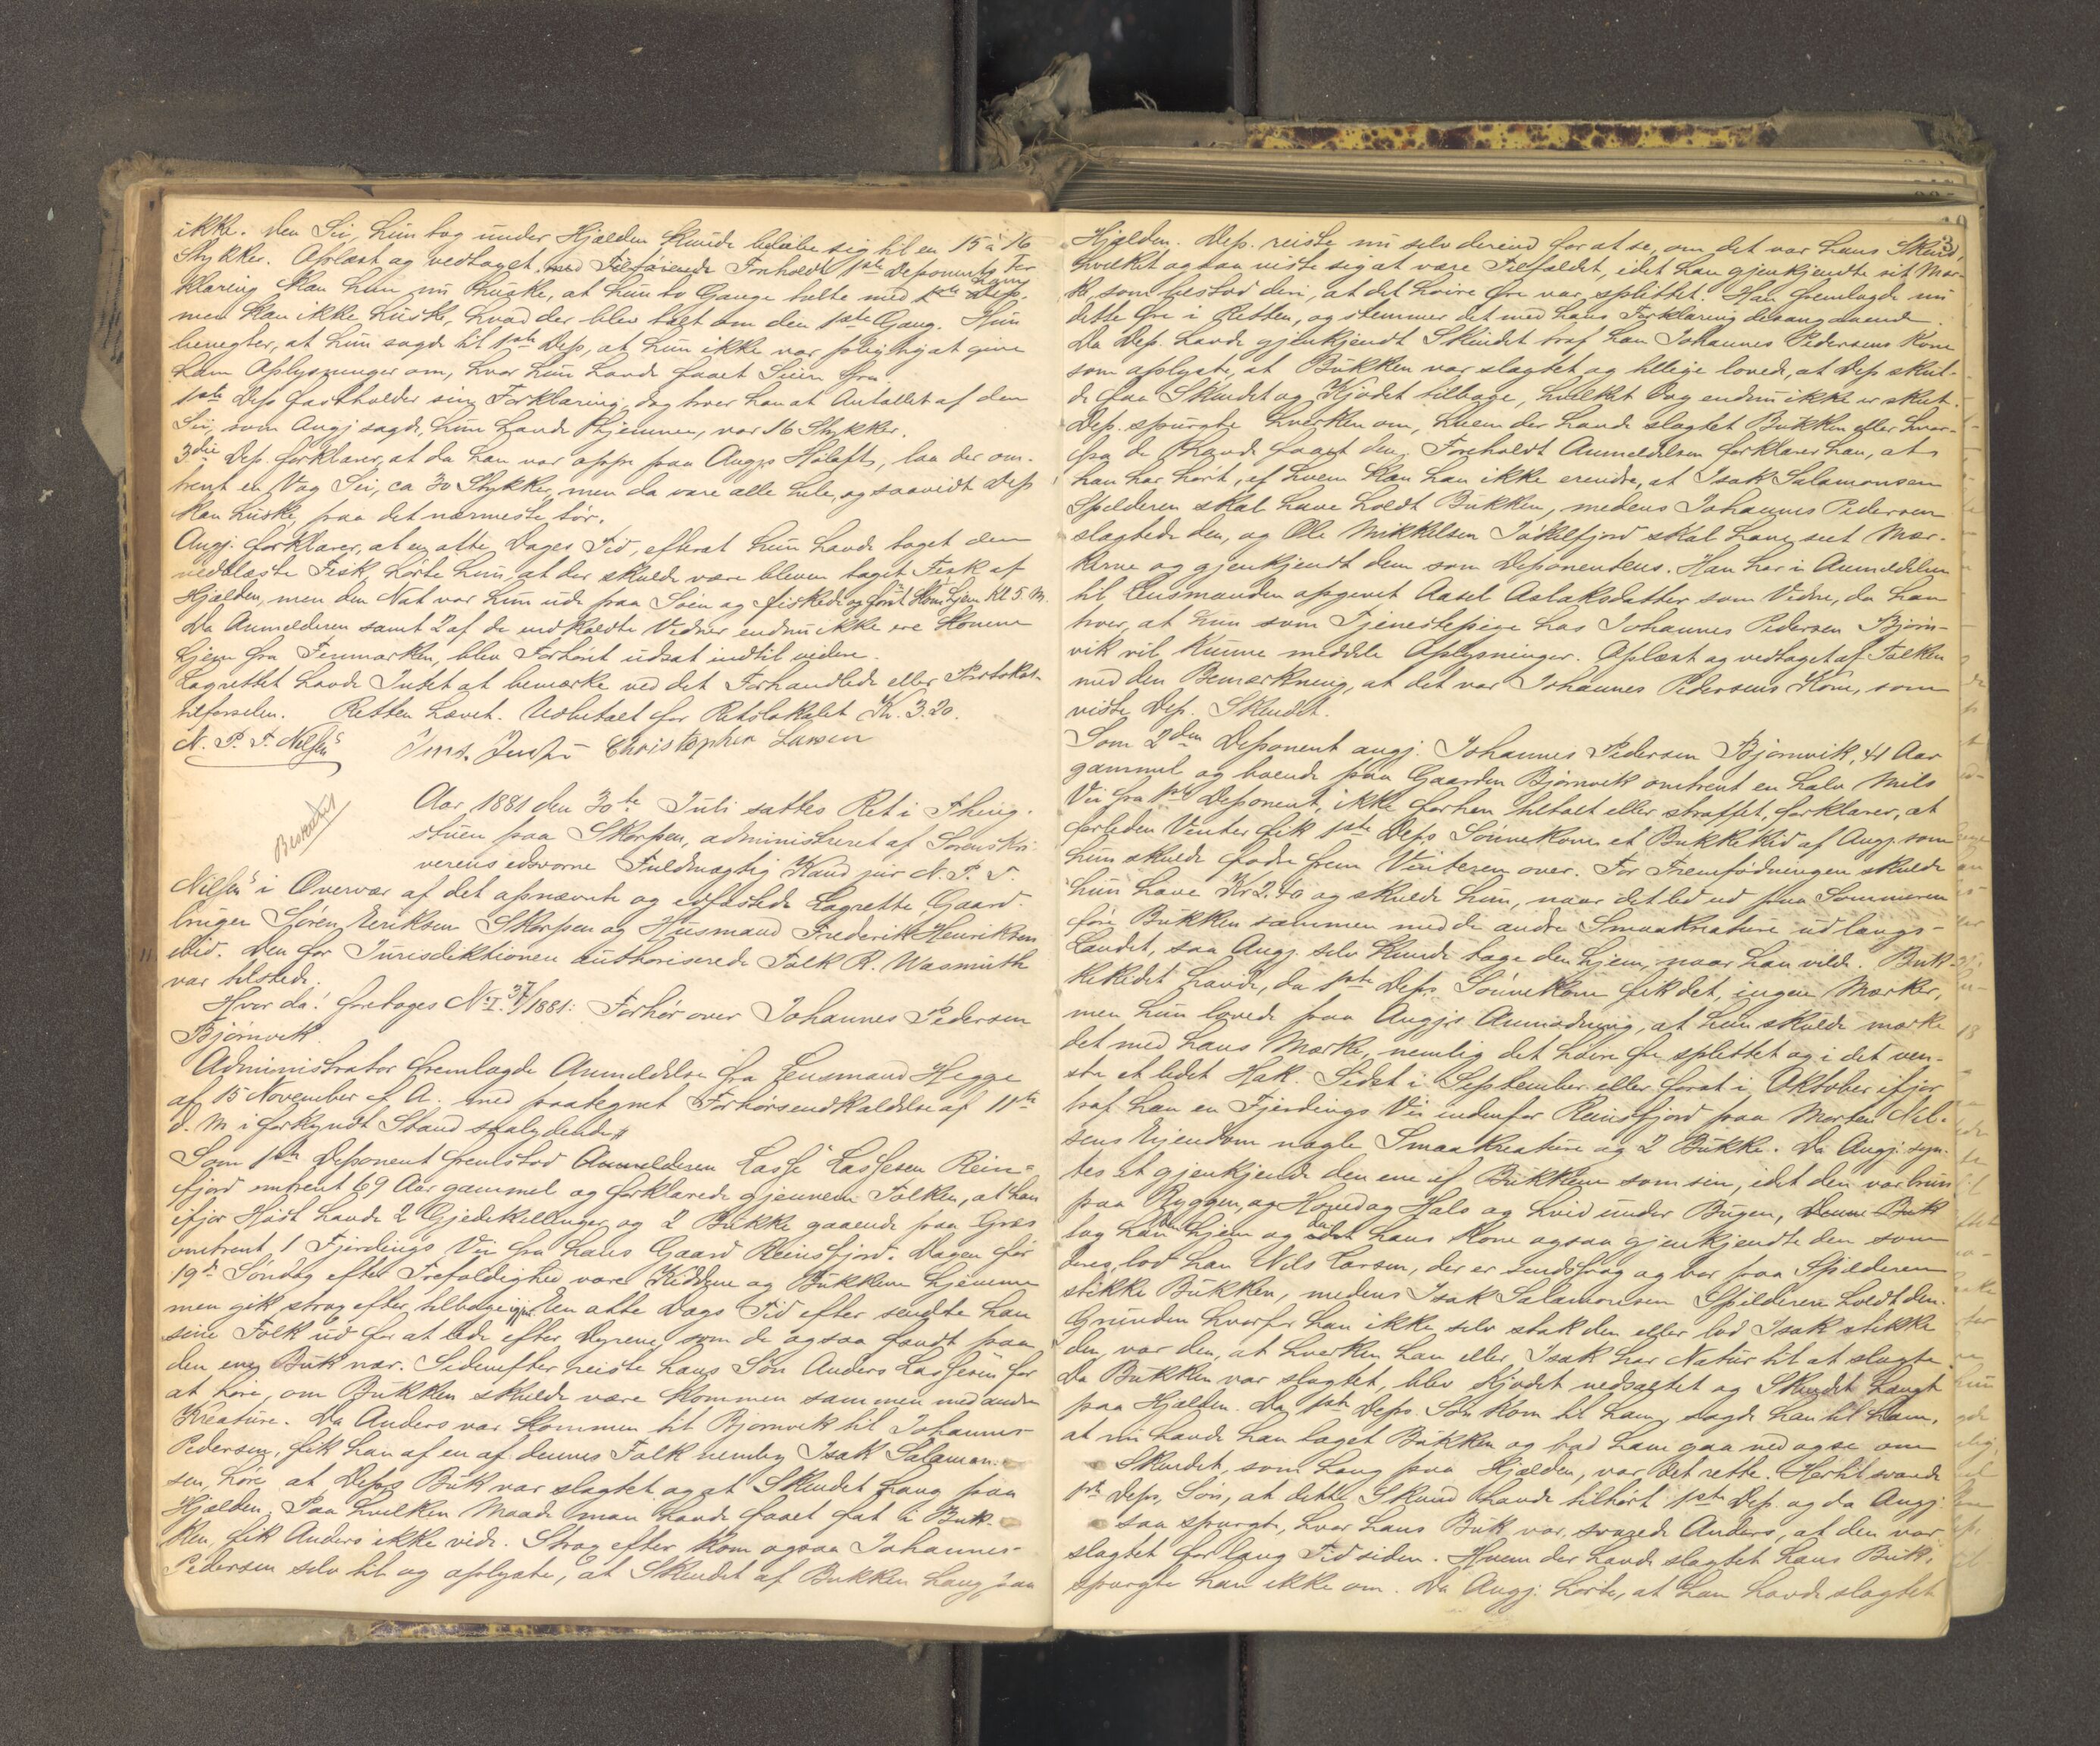 ikke. Den Sei, hun tog under Hjælden kunde beløbe sig til en 15 à 16
Stykker. Oplæst og vedtaget med Tilføiende Forholdt 1ste Deponents For
klaring kan hun nu huske, at hun to Gange talte med ham
men kan ikke huske, hvad der blev talt om den 1ste Gang. Hun
benegter, at hun sagde til 1ste Dep, at hun ikke var pligtig at give
ham Oplysninger om, hvor hun havde faaet Seien fra.
1ste Dep fastholder sin Forklaring, dog tror han at Antallet af den
Sei, som Angj sagde, hun havde hjemme, var 16 Stykker.
3die Dep. forklarer, at da han var oppe paa Angjs Høloft, laa der om-
trent en Vog Sei, ca 30 Stykker, men da vare alle hele, og saavidt Dep
kan huske, paa det nærmeste tør.
Angj. forklarer, at en otte Dages Tid, efterat hun havde taget den
nedblæste Fisk, hørte hun, at der skulde være bleven taget Fisk af
Hjælden, men den Nat var hun ude paa Søen og fiskede og først kom hjem Kl 5 M.
Da Anmelderen samt 2 af de indkaldte Vidner endnu ikke ere komne
hjem fra Finmarken, blev Forhøret udsat indtil videre.
Lagrettet havde Intet at bemærke ved det Forhandlede eller Protokol-
tilførselen. Retten hævet. Udbetalt for Retslokalet Kr. 3.20.
N. P. T. Nilsen Christopher Larsen
Aar 1881 den 30te Juli sattes Ret i Thing-
stuen paa Skorpen, administreret af Sorenskri-
Beskrevet
verens edsvorne Fuldmægtig Kand jur N. P. T.
Nilsen i Overvær af det opnævnte og edfæstede Lagrette, Gaard-
bruger Søren Eriksen Skorpen og Husmand Frederik Henriksen
ibid. Den for Jurisdiktionen authoriserede Tolk R. Wasmuth
var tilstede.
Hvor da! foretoges No I. 37/1881: Forhør over Johannes Pedersen
Bjørnvik.
Administrator fremlagde Anmeldelse fra Lensmand Hegge
af 15 November f. A. med paategnet Forhørsindkaldelse af 11te
d. M i forkyndt Stand saalydende //
Som 1ste Deponent fremstod Anmelderen Lasse Lassesen Rein-
fjord omtrent 69 Aar gammel og forklarede gjennem Tolken, at han
ifjor Høst havde 2 Gjedekillinger og 2 Bukke gaaende paa Græs
omtrent 1 Fjerdings Vei fra hans Gaard Reinsfjord. Dagen før
19de Søndag efter Trefoldighed vare Kiddene og Bukkene hjemme
men gik strax efter tilbage igjen. En otte Dags Tid efter sendte han
sine Folk ud for at lede efter Dyrene, som de ogsaa fandt paa
den ene Buk nær. Sidenefter reiste hans Søn Anders Lassesen for
at høre, om Bukken skulde være kommen sammen med andre
Kreature. Da Anders var kommen til Bjørnvik til Johannes
Pedersen, fik han af en af dennes Folk nemlig Isak Salamon-
sen, høre at Deps Buk var slagtet og at Skindet hang paa
Hjælden. Paa hvilken Maade man havde faaet fat i Buk-
ken, fik Anders ikke vide. Strax efter kom ogsaa Johannes
Pedersen selv til og oplyste, at Skindet af Bukken hang paa
3
Hjælden. Dep. reiste nu selv derind for at se, om det var hans Skind,
hvilket ogsaa viste sig at være Tilfældet, idet han gjenkjendte sit Mær-
ke, som bestod deri, at det høire Øre var splittet. Han fremlagde nu
dette Øre i Retten, og stemmer det med hans Forklaring desangaaende.
Da Dep. havde gjenkjendt Skindet traf han Johannes Pedersens Kone
som oplyste, at Bukken var slagtet og tillige lovede, at Dep skul-
de faa Skindet og Kjødet tilbage, hvilket dog endnu ikke er skeet.
Dep. spurgte hverken om, hvem der havde slagtet Bukken eller hvor-
fra de havde faaet den. Foreholdt Anmeldelsen forklarer han, at
han har hørt, af hvem kan han ikke erindre, at Isak Salamonsen
Spilderen skal have holdt Bukken, medens Johannes Pedersen
slagtede den, og Ole Mikkelsen Jøkelfjord skal have seet Mær-
kerne og gjenkjendt dem som Deponentens. Han har i Anmeldelsen
til Lensmanden opgivet Aasel Aslaksdatter som Vidne, da han
tror, at hun som Tjenestepige hos Johannes Pedersen Bjørn-
vik vil kunne meddele Oplysninger. Oplæst og vedtaget af Tolken
med den Bemærkning, at det var Johannes Pedersens Kone, som
viste Dep. Skindet.
Som 2den Deponent angj. Johannes Pedersen Bjørnvik, 41 Aar
gammel og boende paa Gaarden Bjørnvik omtrent en halv Mils
Vei fra 1ste Deponent, ikke forhen tiltalt eller straffet, forklarer, at
forleden Vinter fik 1ste Deps Sønnekone et Bukkekid af Angj. som
hun skulde fodre frem Vinteren over. For Fremfødningen skulde
hun have Kr 2.40 og skulde hun, naar det led ud paa Sommeren
føre Bukken sammen med de andre Smaakreature ud langs-
Landet, saa Angj. selv kunde tage den hjem, naar han vilde. Buk-
kekidet havde, da 1ste Deps. Sønnekone fik det, ingen Mærker,
men hun lovede paa Angjs Anmodning, at hun skulde mærke
det med hans Mærke, nemlig det høire Øre splittet og i det ven-
stre et lidet Hak. Sidst i September eller først i Oktober ifjor
traf han en Fjerdings Vei indenfor Reinsfjord paa Morten Nil-
sens Eiendom nogle Smaakreature og 2 Bukke. Da Angj. syn-
tes at gjenkjende den ene af Bukkene som sin, idet den var brun
paa Ryggen, og Hoved og Hals og hvid under Bugen,
tog han den hjem og da hans Kone ogsaa gjenkjendte den som
deres, lod han Nils Larsen, der er Sindssvag og bor paa Spilderen
stikke Bukken, medens Isak Salamonsen Spilderen holdt den.
Grunden hvorfor han ikke selv stak den eller lod Isak stikke
den, var den, at hverken han eller Isak har Natur til at slagte.
Da Bukken var slagtet, blev Kjødet nedsaltet og Skindet hængt
paa Hjælden. Da 1ste Deps. Søn kom til ham, sagde han til ham,
at nu havde han taget Bukken og bad ham gaa ned og se om
Skindet, som hang paa Hjælden, var det rette. Hertil svarede
1ste Deps. Søn, at dette Skind havde tilhørt 1ste Dep. og da Angj.
saa spurgte, hvor hans Buk var, svarede Anders, at den var
slagtet for lang Tid siden. Hvem der havde slagtet hans Buk,
spurgte han ikke om. Da Angj. hørte, at han havde slagtet